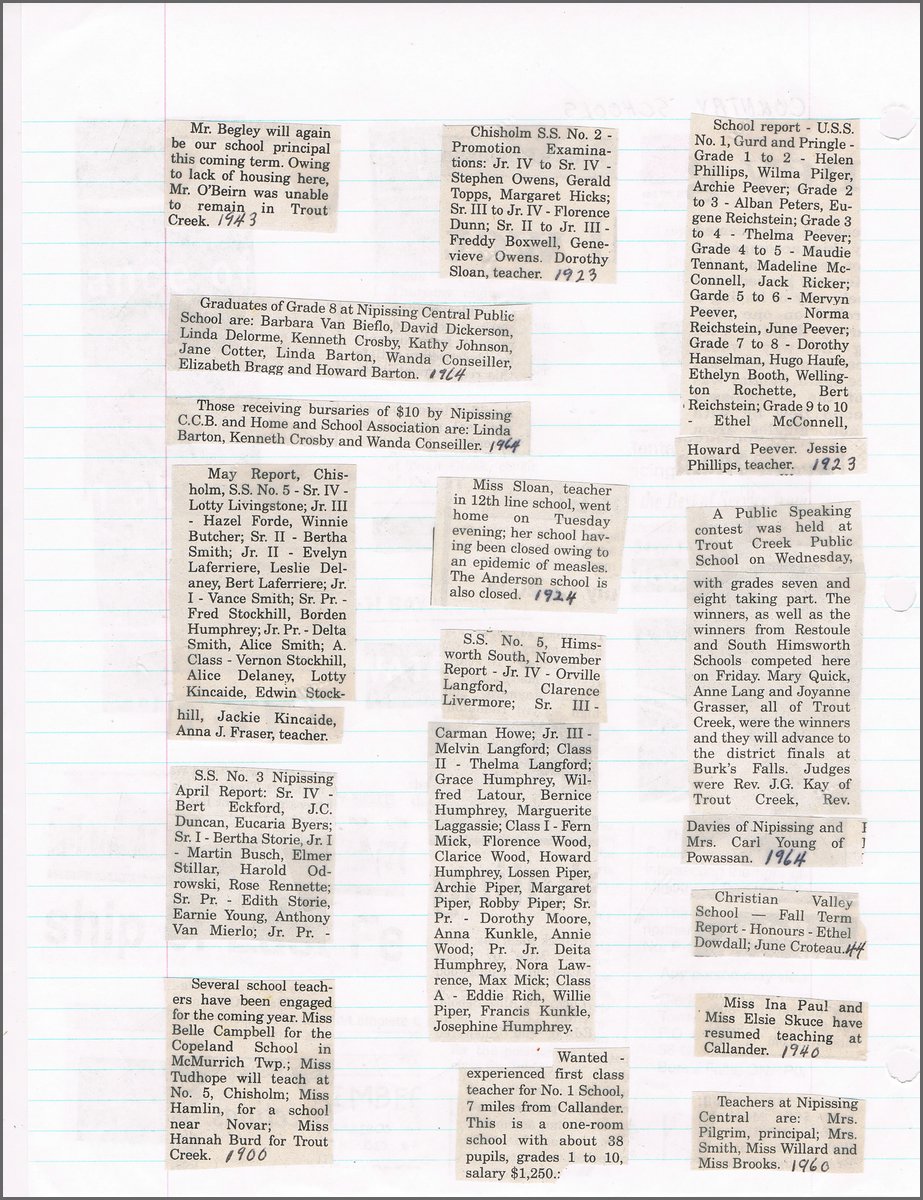 Mr. Begley will again
be our school principal
this coming term. Owing
to lack of housing here,
Mr. O'Beirn was unable
to remain in Trout
Creek. 1943
Graduates of Grade 8 at Nipissing Central Public
School are: Barbara Van Bieflo, David Dickerson,
Linda Delorme, Kenneth Crosby, Kathy Johnson,
Jane Cotter, Linda Barton, Wanda Conseiller,
Elizabeth Bragg and Howard Barton. 1964
Those receiving bursaries of $10 by Nipissing
C.C.B. and Home and School Association are: Linda
Barton, Kenneth Crosby and Wanda Conseiller. 1964
May Report, Chis-
holm, S.S. No. 5 - Sr. IV -
Lotty Livingstone; Jr. III
- Hazel Forde, Winnie
Butcher; Sr. II - Bertha
Smith; Jr. II - Evelyn
Laferriere, Leslie Del-
aney, Bert Laferriere; Jr.
I - Vance Smith; Sr. Pr. -
Fred Stockhill, Borden
Humphrey; Jr. Pr. - Delta
Smith, Alice Smith; A.
Class - Vernon Stockhill,
Alice Delaney, Lotty
Kincaide, Edwin Stock-
hill, Jackie Kincaide,
Anna J. Fraser, teacher.
S.S. No. 3 Nipissing
April Report: Sr. IV -
Bert Eckford, J.C.
Duncan, Eucaria Byers;
Sr. I - Bertha Storie, Jr. I
- Martin Busch, Elmer
Stillar, Harold Od-
rowski, Rose Rennette;
Sr. Pr. - Edith Storie,
Earnie Young, Anthony
Van Mierlo; Jr. Pr. -
Several school teach-
ers have been engaged
for the coming year. Miss
Belle Campbell for the
Copeland School in
McMurrich Twp.; Miss
Tudhope will teach at
No. 5, Chisholm; Miss
Hamlin, for a school
near Novar; Miss
Hannah Burd for Trout
Creek. 1900
Chisholm S.S. No. 2 -
Promotion Examina-
tions: Jr. IV to Sr. IV -
Stephen Owens, Gerald
Topps, Margaret Hicks;
Sr. III to Jr. IV - Florence
Dunn; Sr. II to Jr. III -
Freddy Boxwell, Gene-
vieve Owens. Dorothy
Sloan, teacher. 1923
Miss Sloan, teacher
in 12th line school, went
home on Tuesday
evening; her school hav-
ing been closed owing to
an epidemic of measles.
The Anderson school is
also closed. 1924
S.S. No. 5, Hims-
worth South, November
Report - Jr. IV - Orville
Langford, Clarence
Livermore; Sr. III -
Carman Howe; Jr. III -
Melvin Langford; Class
II - Thelma Langford;
Grace Humphrey, Wil-
fred Latour, Bernice
Humphrey, Marguerite
Laggassie; Class I - Fern
Mick, Florence Wood,
Clarice Wood, Howard
Humphrey, Lossen Piper,
Archie Piper, Margaret
Piper, Robby Piper; Sr.
Pr. - Dorothy Moore,
Anna Kunkle, Annie
Wood; Pr. Jr. Deita
Humphrey, Nora Law-
rence, Max Mick; Class
A - Eddie Rich, Willie
Piper, Francis Kunkle,
Josephine Humphrey.
Wanted -
experienced first class
teacher for No. 1 School,
7 miles from Callander.
This is a one-room
school with about 38
pupils, grades 1 to 10,
salary $1,250.:
School report - U.S.S.
No. 1, Gurd and Pringle -
Grade 1 to 2 - Helen
Phillips, Wilma Pilger,
Archie Peever; Grade 2
to 3 - Alban Peters, Eu-
gene Reichstein; Grade 3
to 4 - Thelma Peever;
Grade 4 to 5 - Maudie
Tennant, Madeline Mc-
Connell, Jack Ricker;
Garde 5 to 6 - Mervyn
Peever, Norma
Reichstein, June Peever;
Grade 7 to 8 - Dorothy
Hanselman, Hugo Haufe,
Ethelyn Booth, Welling-
ton Rochette, Bert
Reichstein; Grade 9 to 10
- Ethel McConnell,
Howard Peever. Jessie
Phillips, teacher. 1923
A Public Speaking
contest was held at
Trout Creek Public
School on Wednesday,
with grades seven and
eight taking part. The
winners, as well as the
winners from Restoule
and South Himsworth
Schools competed here
on Friday. Mary Quick,
Anne Lang and Joyanne
Grasser, all of Trout
Creek, were the winners
and they will advance to
the district finals at
Burk's Falls. Judges
were Rev. J.G. Kay of
Trout Creek, Rev.
Davies of Nipissing and
Mrs. Carl Young of
Powassan. 1964
Christian Valley
School — Fall Term
Report - Honours - Ethel
Dowdall; June Croteau. 44
Miss Ina Paul and
Miss Elsie Skuce have
resumed teaching at
Callander. 1940
Teachers at Nipissing
Central are: Mrs.
Pilgrim, principal; Mrs.
Smith, Miss Willard and
Miss Brooks. 1960